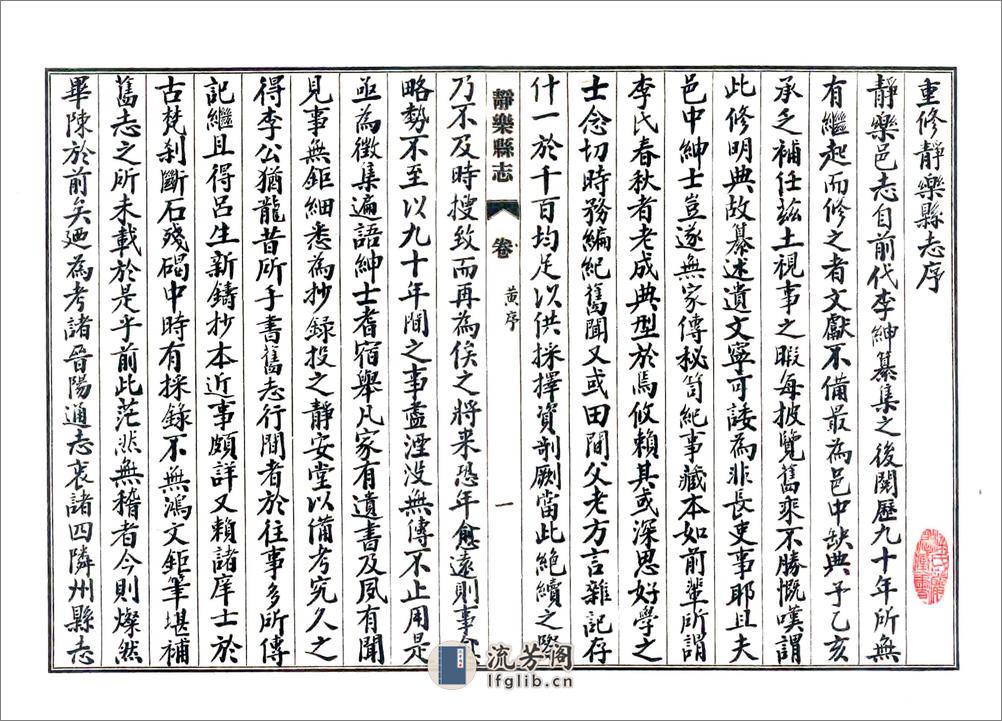 重修靜樂縣志序
靜樂邑志自前代李紳纂集之後閱歷九十年所無
有繼起而修之者文獻不備最為邑中缺典予乙亥
承乏補任茲土視事之暇每披覽舊乘不勝慨嘆謂
此修明典故纂述遺文寧可諉為非長吏事耶且夫
邑中紳士豈遂無家傳秘笥紀事藏本如前輩所謂
李氏春秋者老成典型於焉攸賴其或深思好學之
士念切時務編紀舊聞又或田間父老方言雜記存
什一於千百均足以供採擇資剞劂當此絕續之際
靜樂縣志 卷 黃序 一
乃不及時搜致而再為俟之將来恐年愈遠則事
略勢不至以九十年間之事盡湮沒無傳不止用是
亟為徵集遍語紳士耆宿舉凡家有遺書及夙有聞
見事無鉅細悉為抄録投之靜安堂以備考究久之
得李公猶龍昔所手書舊志行間者於往事多所傳
記繼且得呂生新鑄抄本近事頗詳又賴諸庠士於
古梵刹斷石殘碣中時有採錄不無鴻文鉅筆堪補
舊志之所未載於是乎前此茫然無稽者今則燦然
畢陳於前矣廼為考諸晉陽通志裒諸四隣州縣志
流芳阁
lfglib.cn